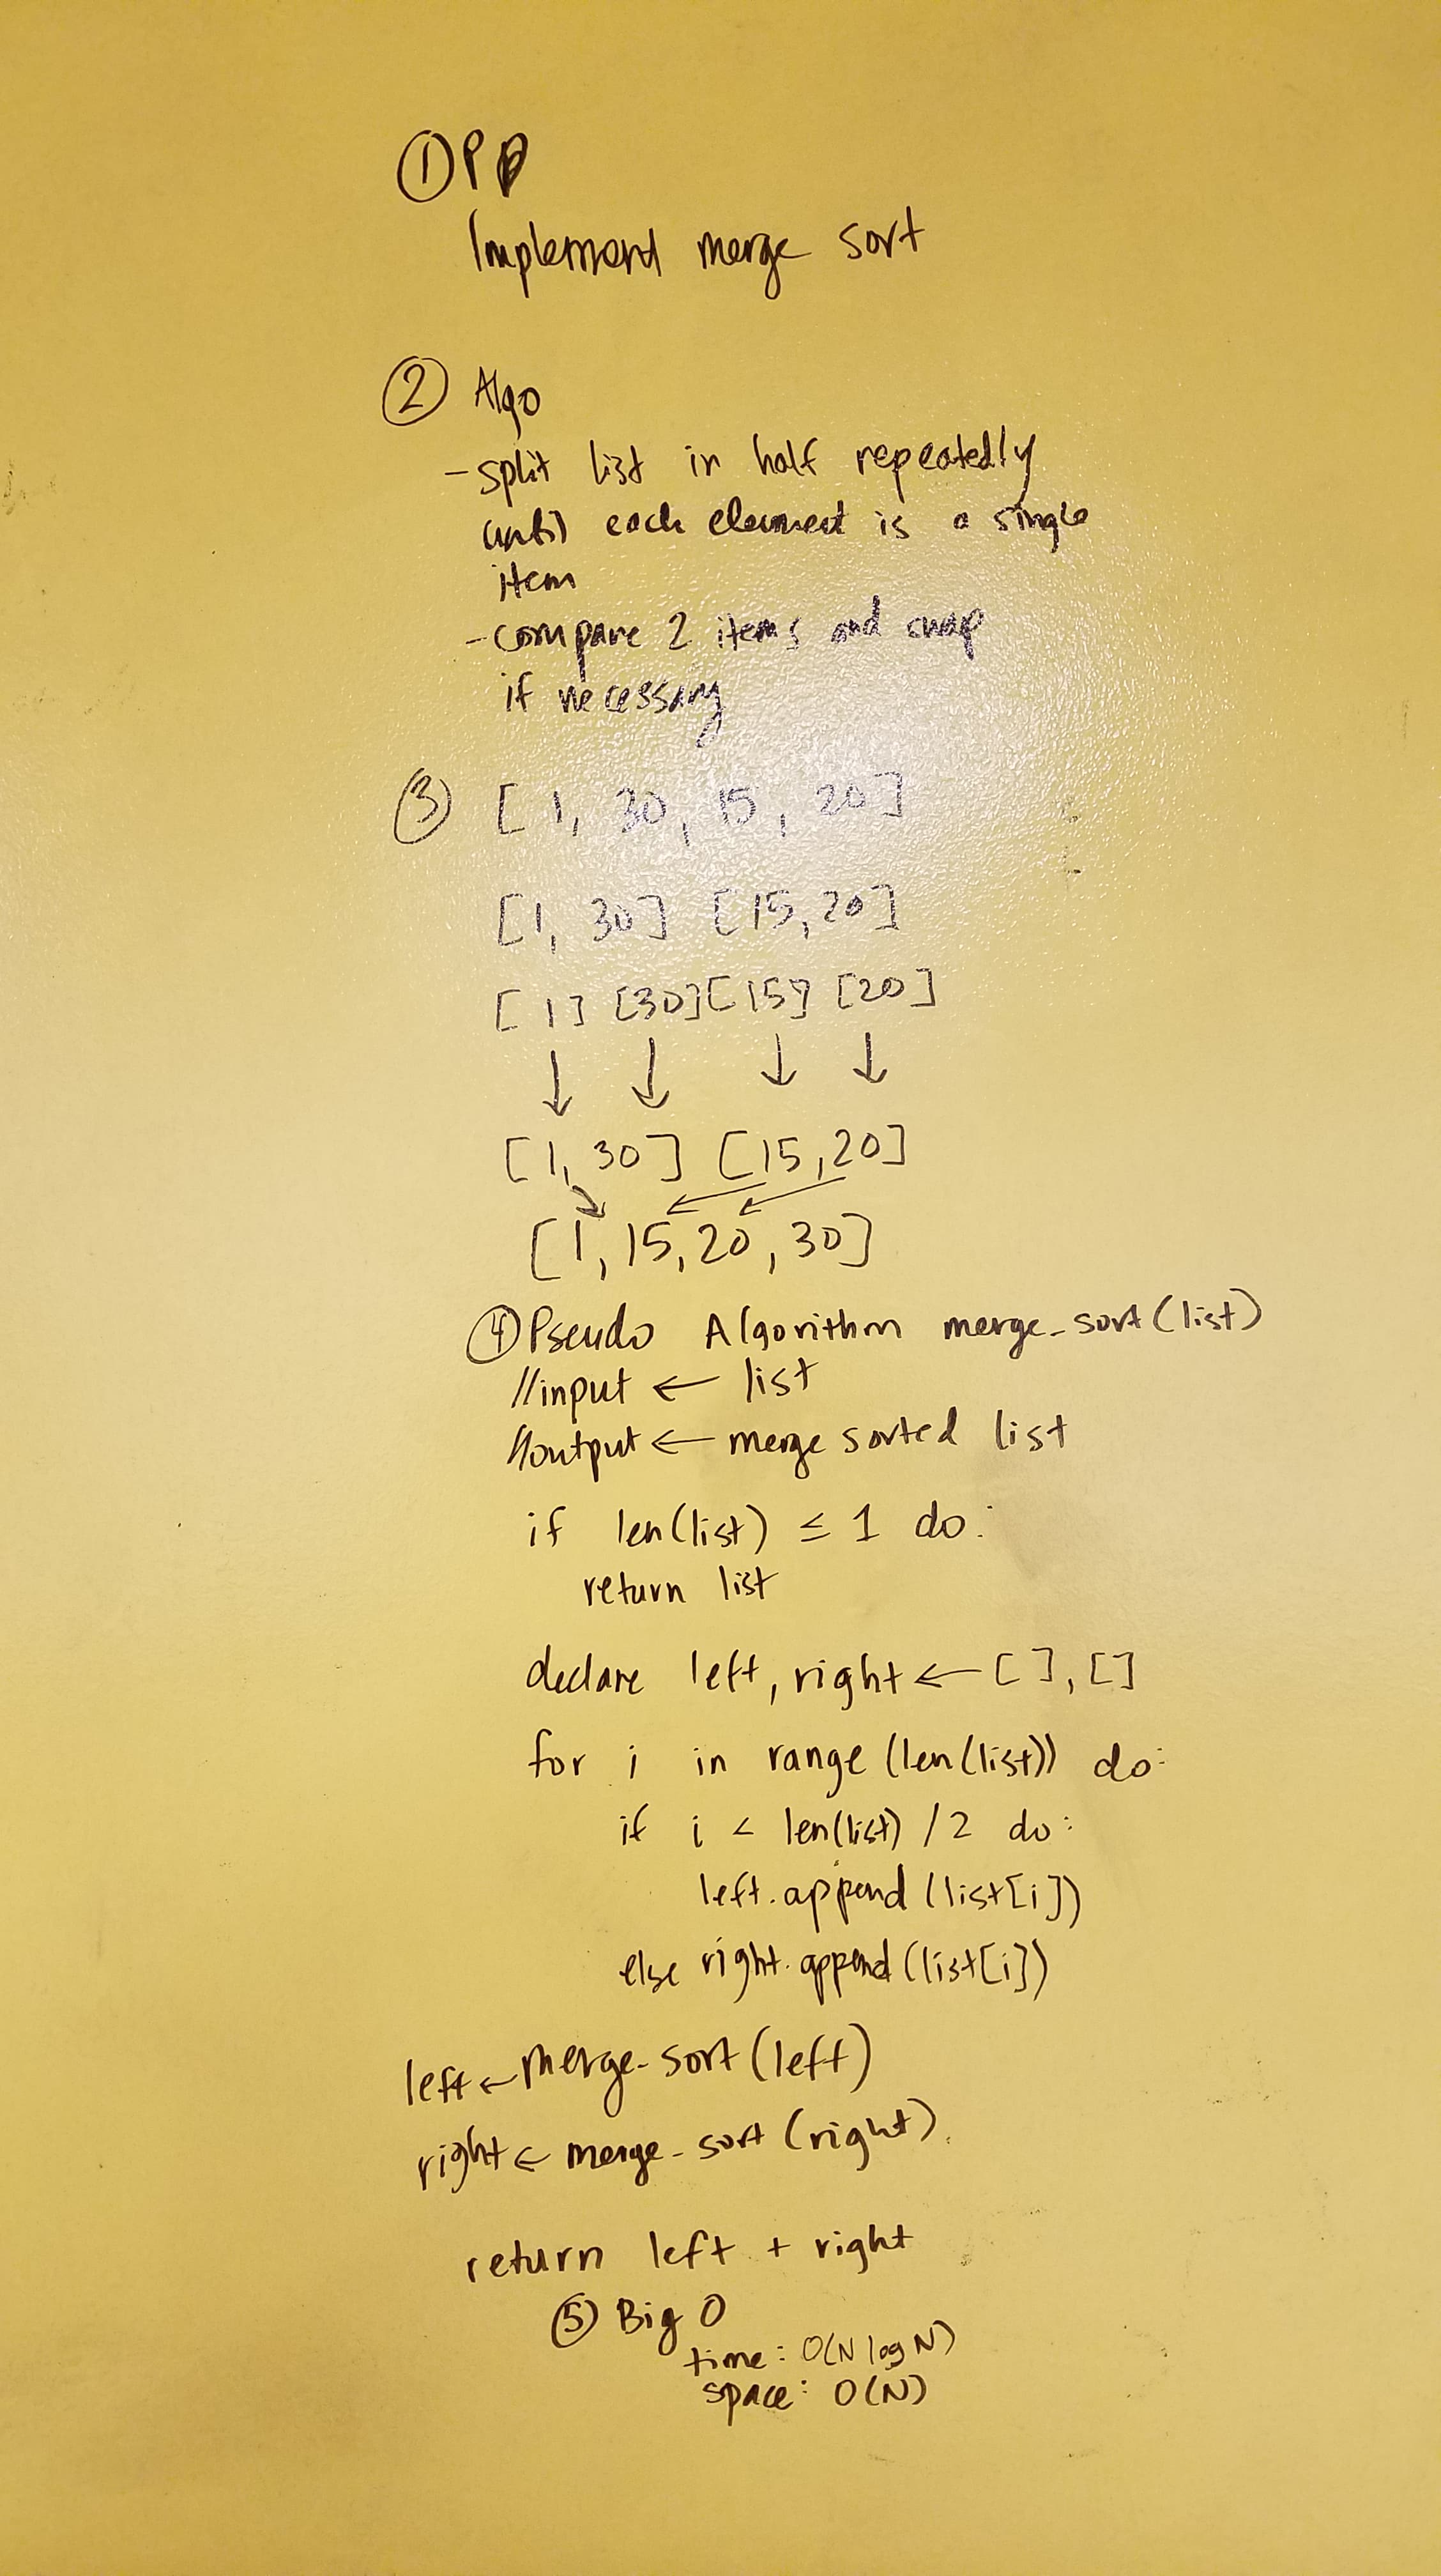 ① PP
Implement merge sort
② Algo
- split list in half repeatedly
until each element is a single
item
- compare 2 items and swap
if necessary
③ [ 1, 30, 15, 20 ]
[1, 30] [15, 20]
[1] [30] [15] [20]
↓ ↓ ↓ ↓
[1, 30] [15, 20]
[1, 15, 20, 30]
④ Pseudo Algorithm merge_sort(list)
//input ← list
//output ← merge sorted list
if len(list) ≤ 1 do:
return list
declare left, right ← [ ], [ ]
for i in range (len(list)) do:
if i < len(list) / 2 do:
left.append (list[i])
else right.append (list[i])
left ← merge_sort (left)
right ← merge_sort (right)
return left + right
⑤ Big O
time: O(N log N)
space: O(N)